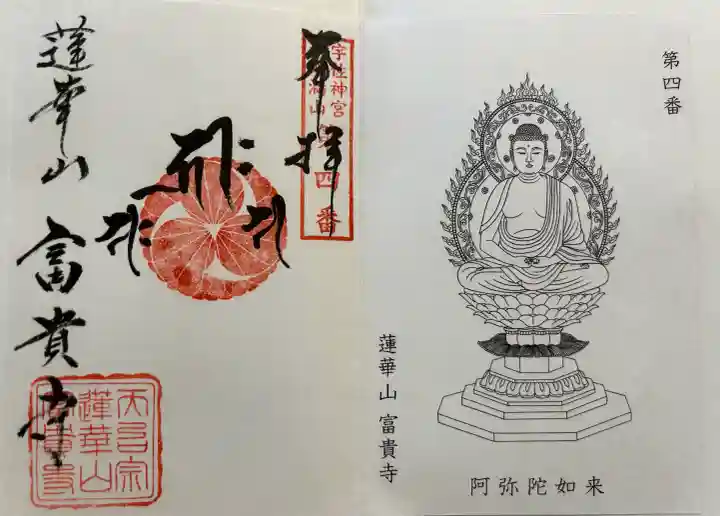 第四番
阿弥陀如来
蓮華山 富貴寺
奉拝
第四番
宇佐神宮
蓮華山
富貴寺
天台宗
蓮華山
富貴寺